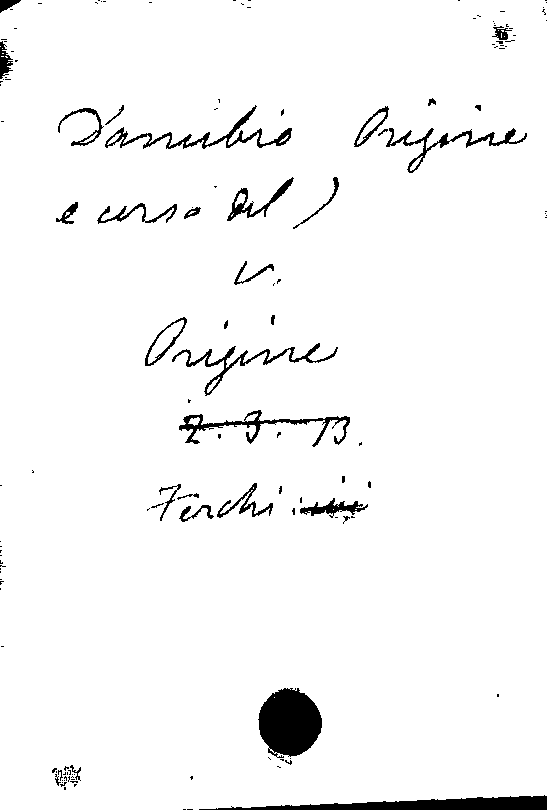 Danubio Origine
e corso del )
v.
Origine
2. 3. 13.
Ferchi